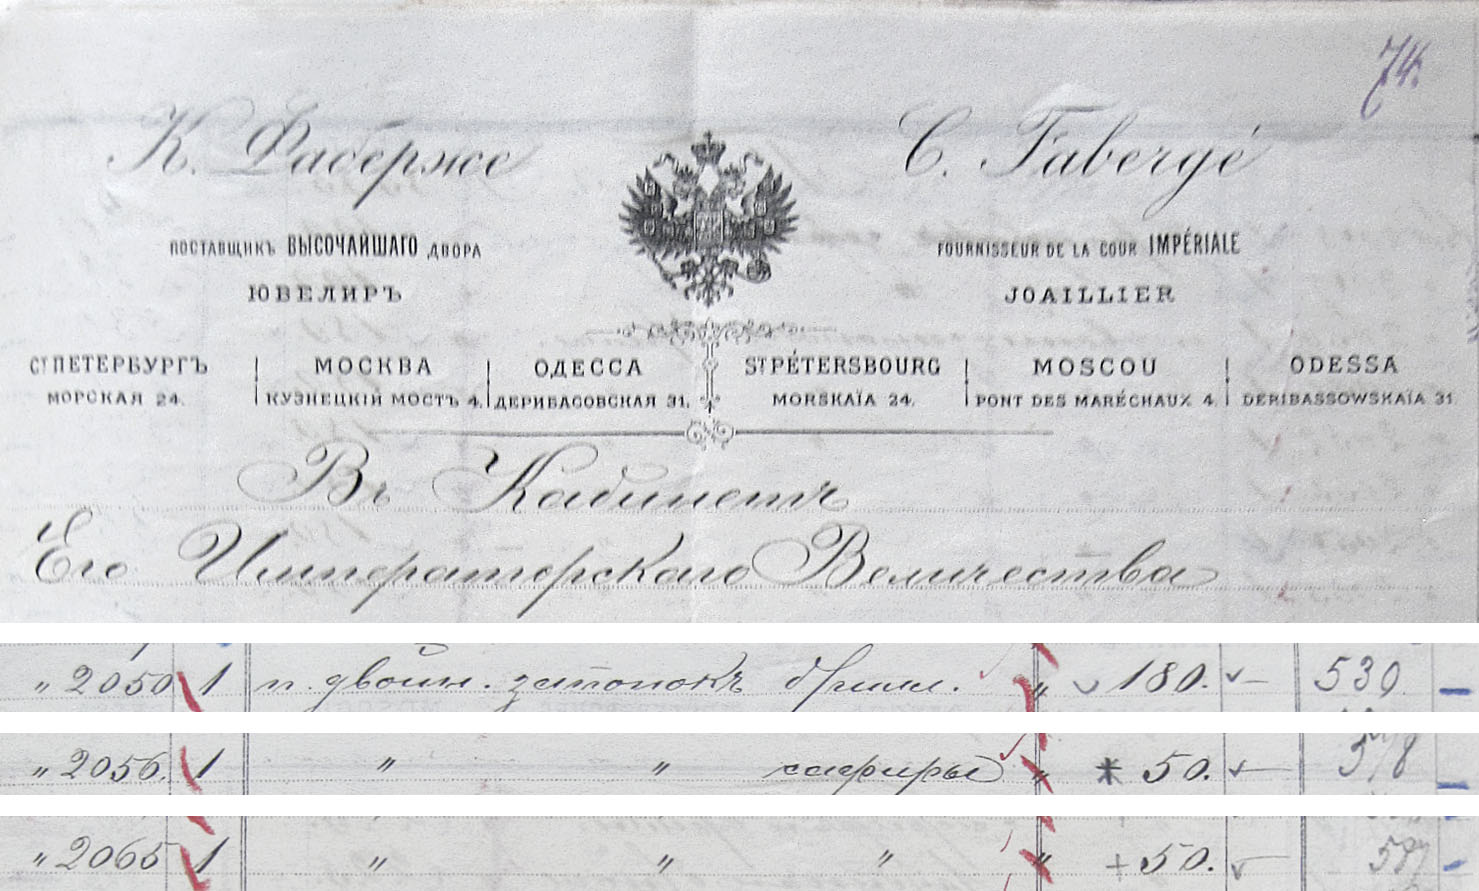 74.
К. Фаберже C. Fabergé
ПОСТАВЩИКЪ ВЫСОЧАЙШАГО ДВОРА FOURNISSEUR DE LA COUR IMPÉRIALE
ЮВЕЛИРЪ JOAILLIER
СТ ПЕТЕРБУРГЪ МОСКВА ОДЕССА ST PÉTERSBOURG MOSCOU ODESSA
МОРСКАЯ 24. КУЗНЕЦКІЙ МОСТЪ 4. ДЕРИБАСОВСКАЯ 31. MORSKAÏA 24. PONT DES MARÉCHAUX 4. DERIBASSOWSKAÏA 31
Въ Кабинетъ
Его Императорскаго Величества
" 2050 1 п. двойн. запонокъ брилл. " 180. — 530. —
" 2056. 1 " " сафиры " * 50. — 578 —
" 2065 1 " " " " + 50. — —